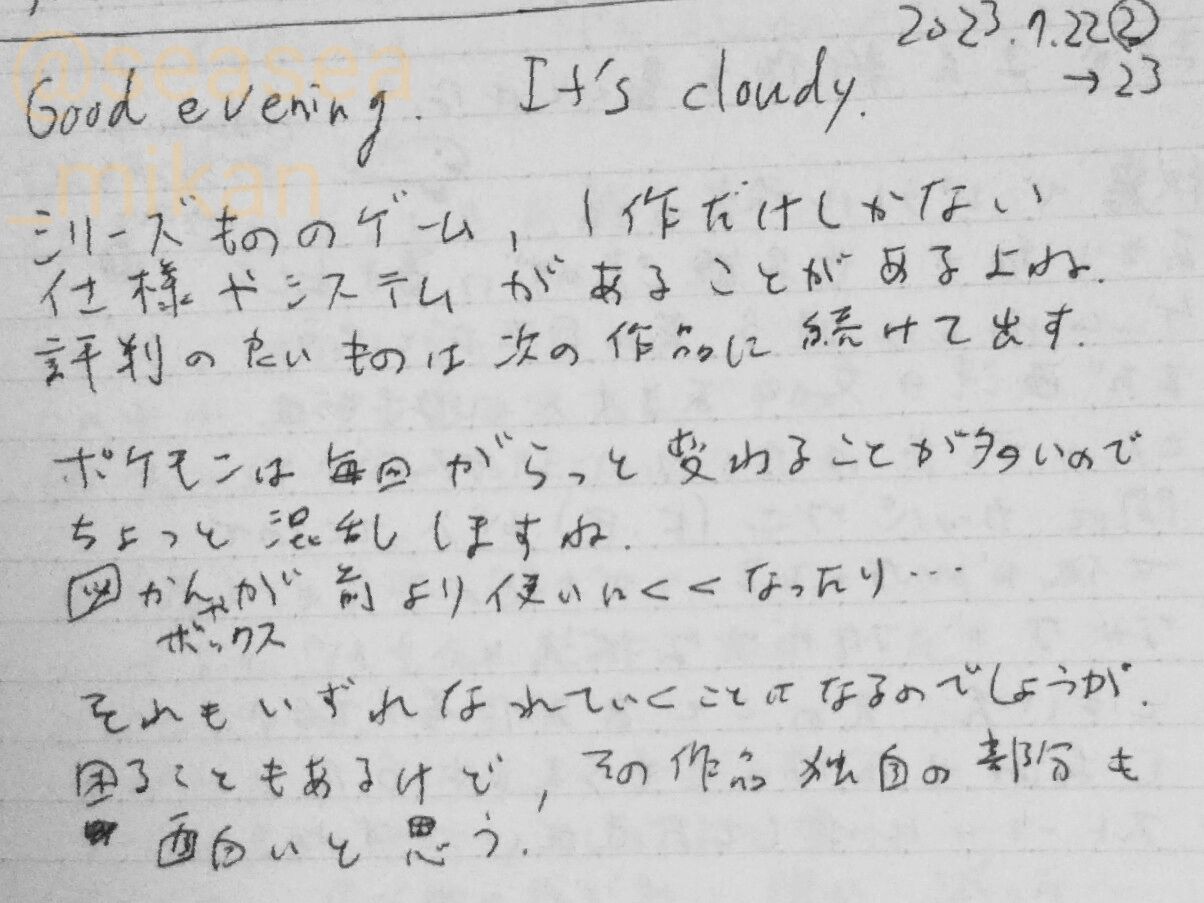 2023.7.22②
→23
@seasea
_mikan
Good evening. It's cloudy.
シリーズもののゲーム, 1作だけしかない
仕様やシステムがあることがあるよね.
評判の良いものは次の作品に続けて出す.
ポケモンは毎回がらっと変わることが多いので
ちょっと混乱しますね.
図かんやボックスが前より使いにくくなったり…
それもいずれなれていくことになるのでしょうが.
困ることもあるけど, その作品独自の部分も
面白いと思う.